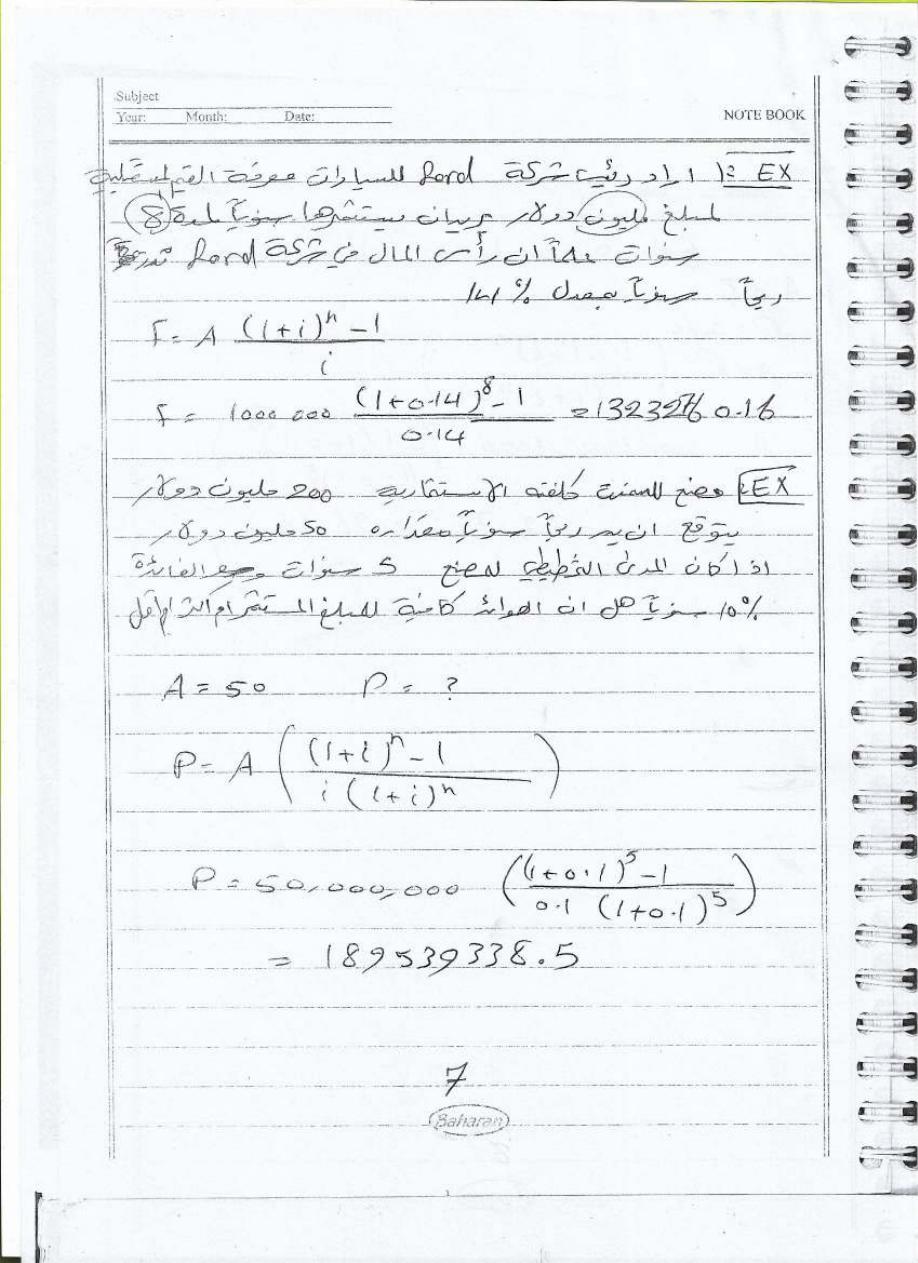 Subject
Year: Month: Date:
NOTE BOOK
EX :( اراد رئيس شركة Ford للسيارات معرفة القيم المستقبلية
لمبلغ مليون دولار يستثمرها سنوياً لمدة 8
سنوات علماً ان رأس المال في شركة Ford
ربحاً سنوياً بمعدل 14%
F = A \frac{(1+i)^n - 1}{i}
F = 1000 000 \frac{(1+0.14)^8 - 1}{0.14} = 0.16
EX مصنع كلفته الاستثمارية 200 مليون دولار
يتوقع ان ربحاً سنوياً مقداره 50 مليون دولار
اذا كان المدى التخطيطي لمصنع 5 سنوات الفائدة
10% سنوياً هل ان العوائد كافية للمبلغ المستثمر ام
A = 50 P = ?
P = A ( \frac{(1+i)^n - 1}{i (1+i)^n} )
P = 50,000,000 ( \frac{(1+0.1)^5 - 1}{0.1 (1+0.1)^5} )
= 189539338.5
7
Baharan